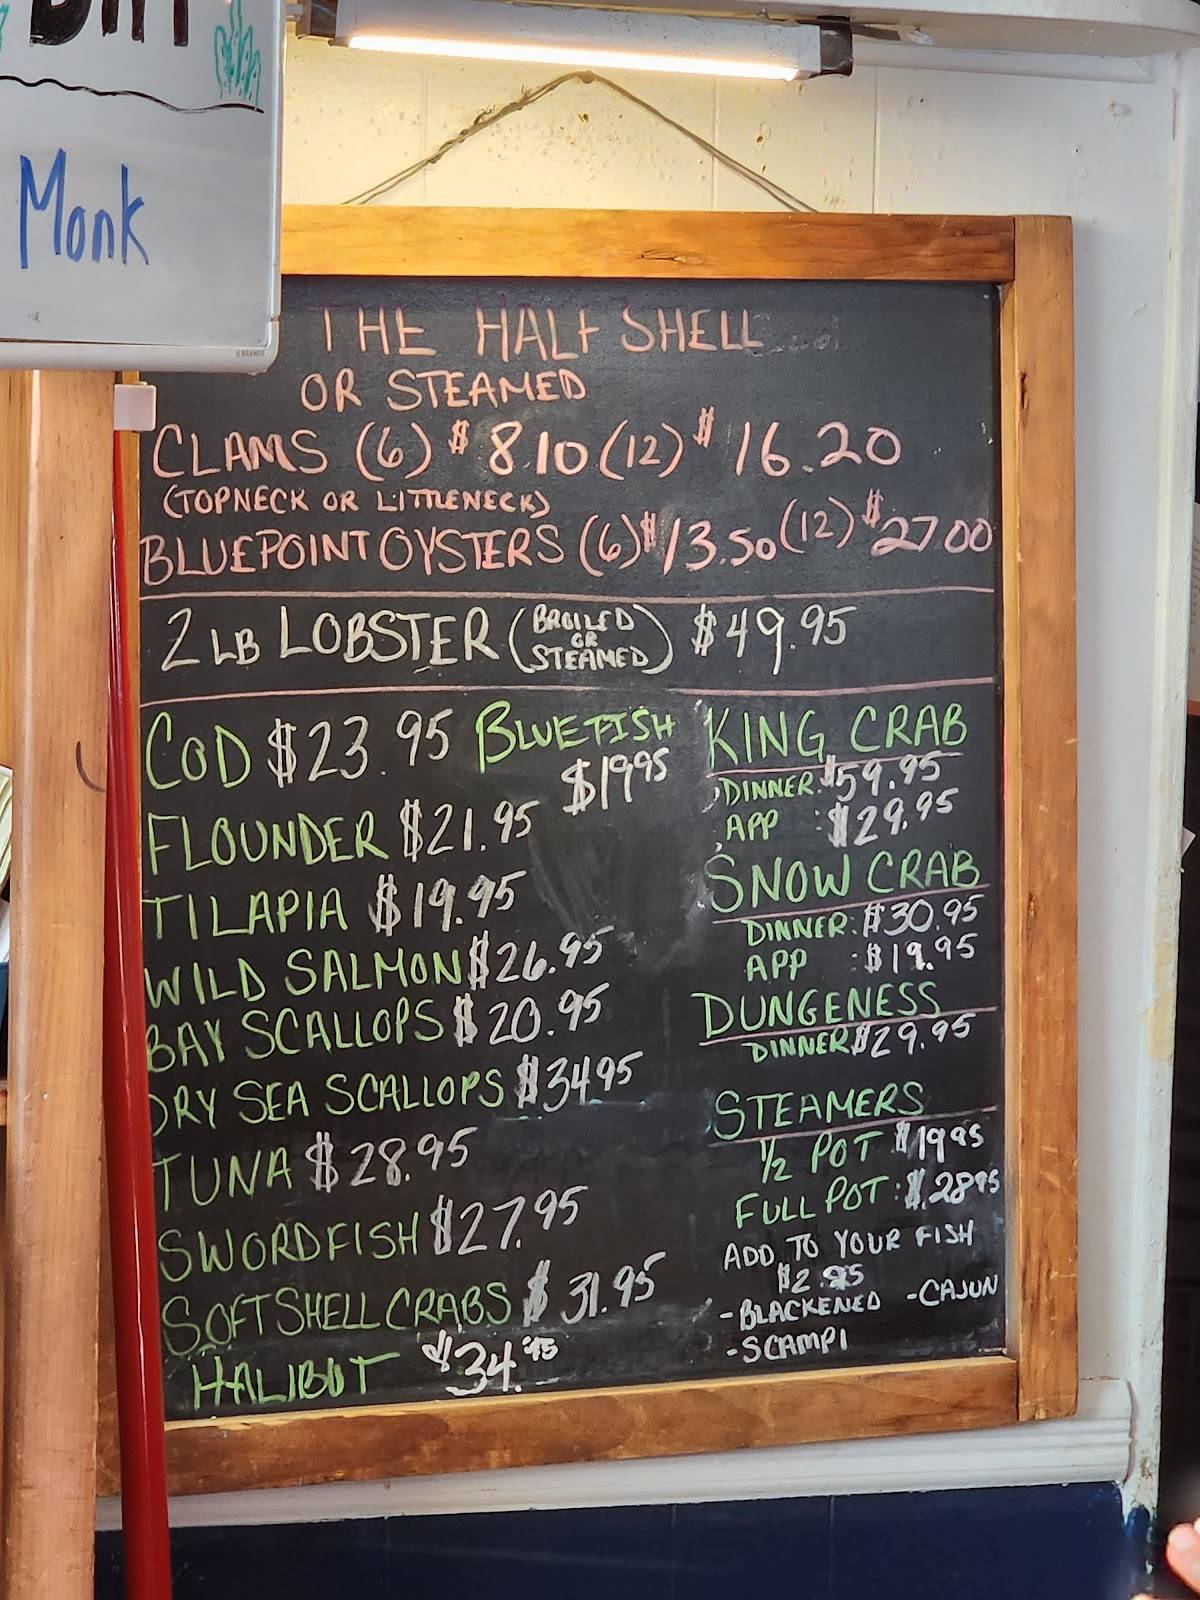 Monk
THE HALF SHELL
OR STEAMED
CLAMS (6) $8.10 (12) $16.20
(TOPNECK OR LITTLENECK)
BLUEPOINT OYSTERS (6) $13.50 (12) $27.00
2 LB LOBSTER (BROILED OR STEAMED) $49.95
COD $23.95 BLUEFISH
$19.95
FLOUNDER $21.95
TILAPIA $19.95
WILD SALMON $26.95
BAY SCALLOPS $20.95
DRY SEA SCALLOPS $34.95
TUNA $28.95
SWORDFISH $27.95
SOFT SHELL CRABS $31.95
HALIBUT $34.95
KING CRAB
DINNER: $59.95
APP : $29.95
SNOW CRAB
DINNER: $30.95
APP : $19.95
DUNGENESS
DINNER $29.95
STEAMERS
1/2 POT $19.95
FULL POT: $28.95
ADD TO YOUR FISH
$2.95
-BLACKENED -CAJUN
-SCAMPI